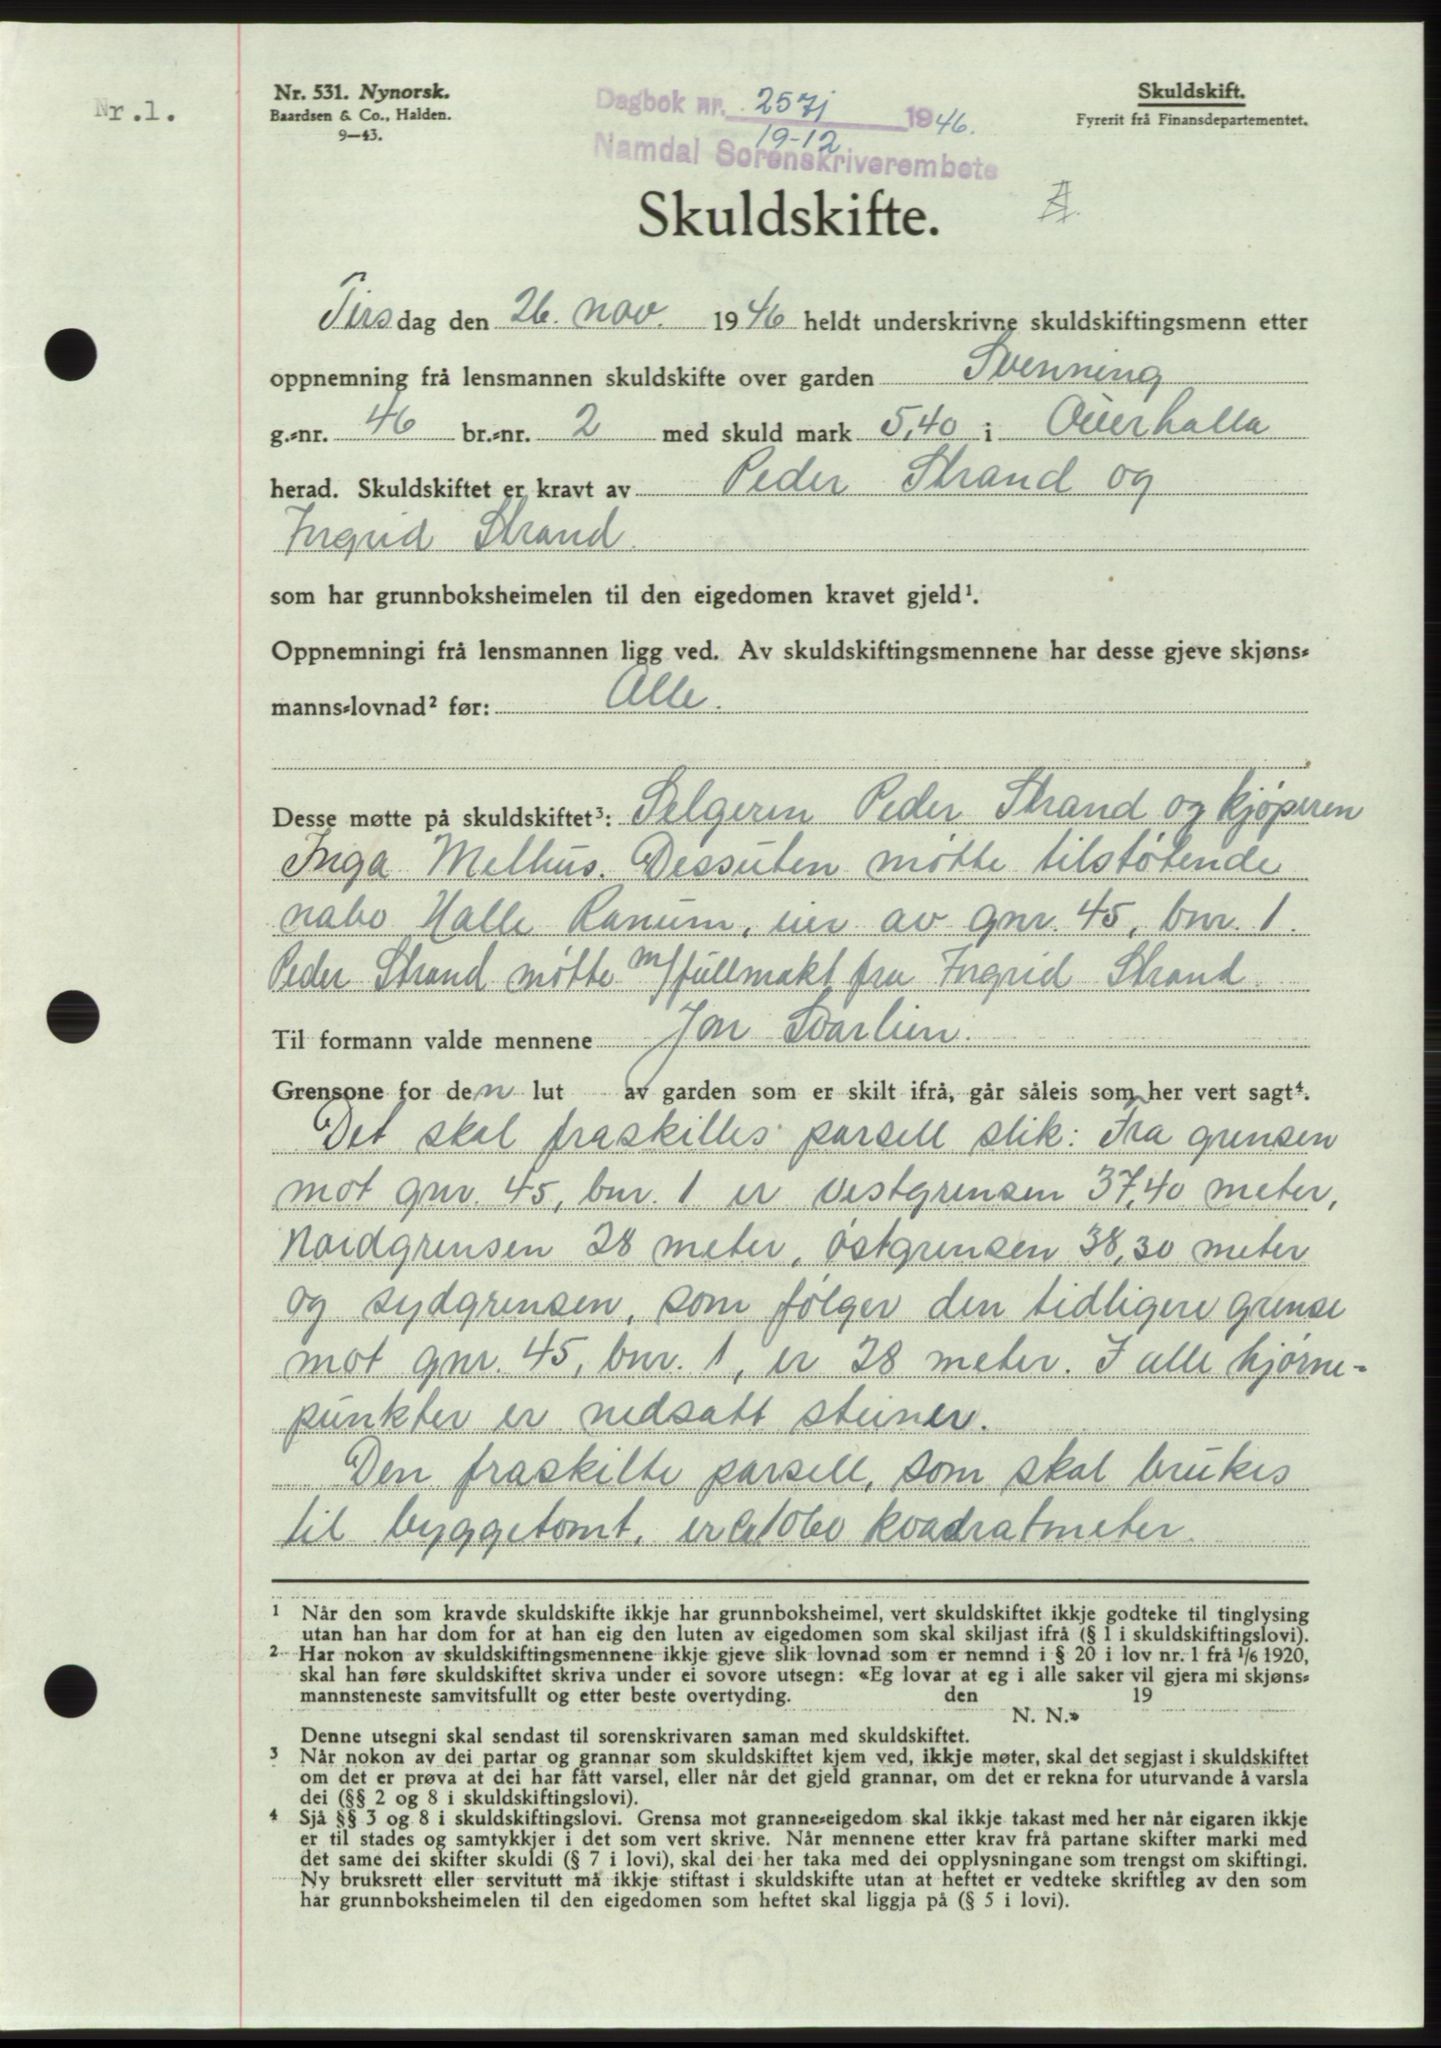 Nr.1.
Nr. 531. Nynorsk.
Baardsen & Co., Halden.
9—43.
Dagbok nr. 2571 1946.
19-12
Namdal Sorenskriverembete
Skuldskift.
Fyrerit frå Finansdepartementet.
Skuldskifte.
Tirsdag den 26. nov. 1946 heldt underskrivne skuldskiftingsmenn etter
oppnemning frå lensmannen skuldskifte over garden Svenning
g.-nr. 46 br.-nr. 2 med skuld mark 5,40 i Överhalla
herad. Skuldskiftet er kravt av Peder Strand og
Ingrid Strand.
som har grunnboksheimelen til den eigedomen kravet gjeld¹.
Oppnemningi frå lensmannen ligg ved. Av skuldskiftingsmennene har desse gjeve skjøns-
manns-lovnad² før: Alle.
Desse møtte på skuldskiftet³: Selgeren Peder Strand og kjøperen
Inga Melhus. Dessuten møtte tilstøtende
nabo Halle Ranum, eier av gnr. 45, bnr. 1.
Peder Strand møtte m/fullmakt fra Ingrid Strand.
Til formann valde mennene Jon Svarlien.
Grensone for den lut av garden som er skilt ifrå, går såleis som her vert sagt⁴.
Det skal fraskilles parsell slik: Fra grensen
mot gnr. 45, bnr. 1 er vestgrensen 37,40 meter,
Nordgrensen 28 meter, østgrensen 38,30 meter
og sydgrensen, som følger den tidligere grense
mot gnr. 45, bnr. 1, er 28 meter. I alle hjørne-
punkter er nedsatt steiner.
Den fraskilte parsell, som skal brukes
til byggetomt, er ca 1060 kvadratmeter.
1 Når den som kravde skuldskifte ikkje har grunnboksheimel, vert skuldskiftet ikkje godteke til tinglysing
utan han har dom for at han eig den luten av eigedomen som skal skiljast ifrå (§ 1 i skuldskiftingslovi).
2 Har nokon av skuldskiftingsmennene ikkje gjeve slik lovnad som er nemnd i § 20 i lov nr. 1 frå 1/6 1920,
skal han føre skuldskiftet skriva under ei sovore utsegn: «Eg lovar at eg i alle saker vil gjera mi skjøns-
mannsteneste samvitsfullt og etter beste overtyding. den 19
N. N.»
Denne utsegni skal sendast til sorenskrivaren saman med skuldskiftet.
3 Når nokon av dei partar og grannar som skuldskiftet kjem ved, ikkje møter, skal det segjast i skuldskiftet
om det er prøva at dei har fått varsel, eller når det gjeld grannar, om det er rekna for uturvande å varsla
dei (§§ 2 og 8 i skuldskiftingslovi).
4 Sjå §§ 3 og 8 i skuldskiftingslovi. Grensa mot granne-eigedom skal ikkje takast med her når eigaren ikkje
er til stades og samtykkjer i det som vert skrive. Når mennene etter krav frå partane skifter marki med
det same dei skifter skuldi (§ 7 i lovi), skal dei her taka med dei opplysningane som trengst om skiftingi.
Ny bruksrett eller servitutt må ikkje stiftast i skuldskifte utan at heftet er vedteke skriftleg av den som
har grunnboksheimelen til den eigedomen som heftet skal liggja på (§ 5 i lovi).